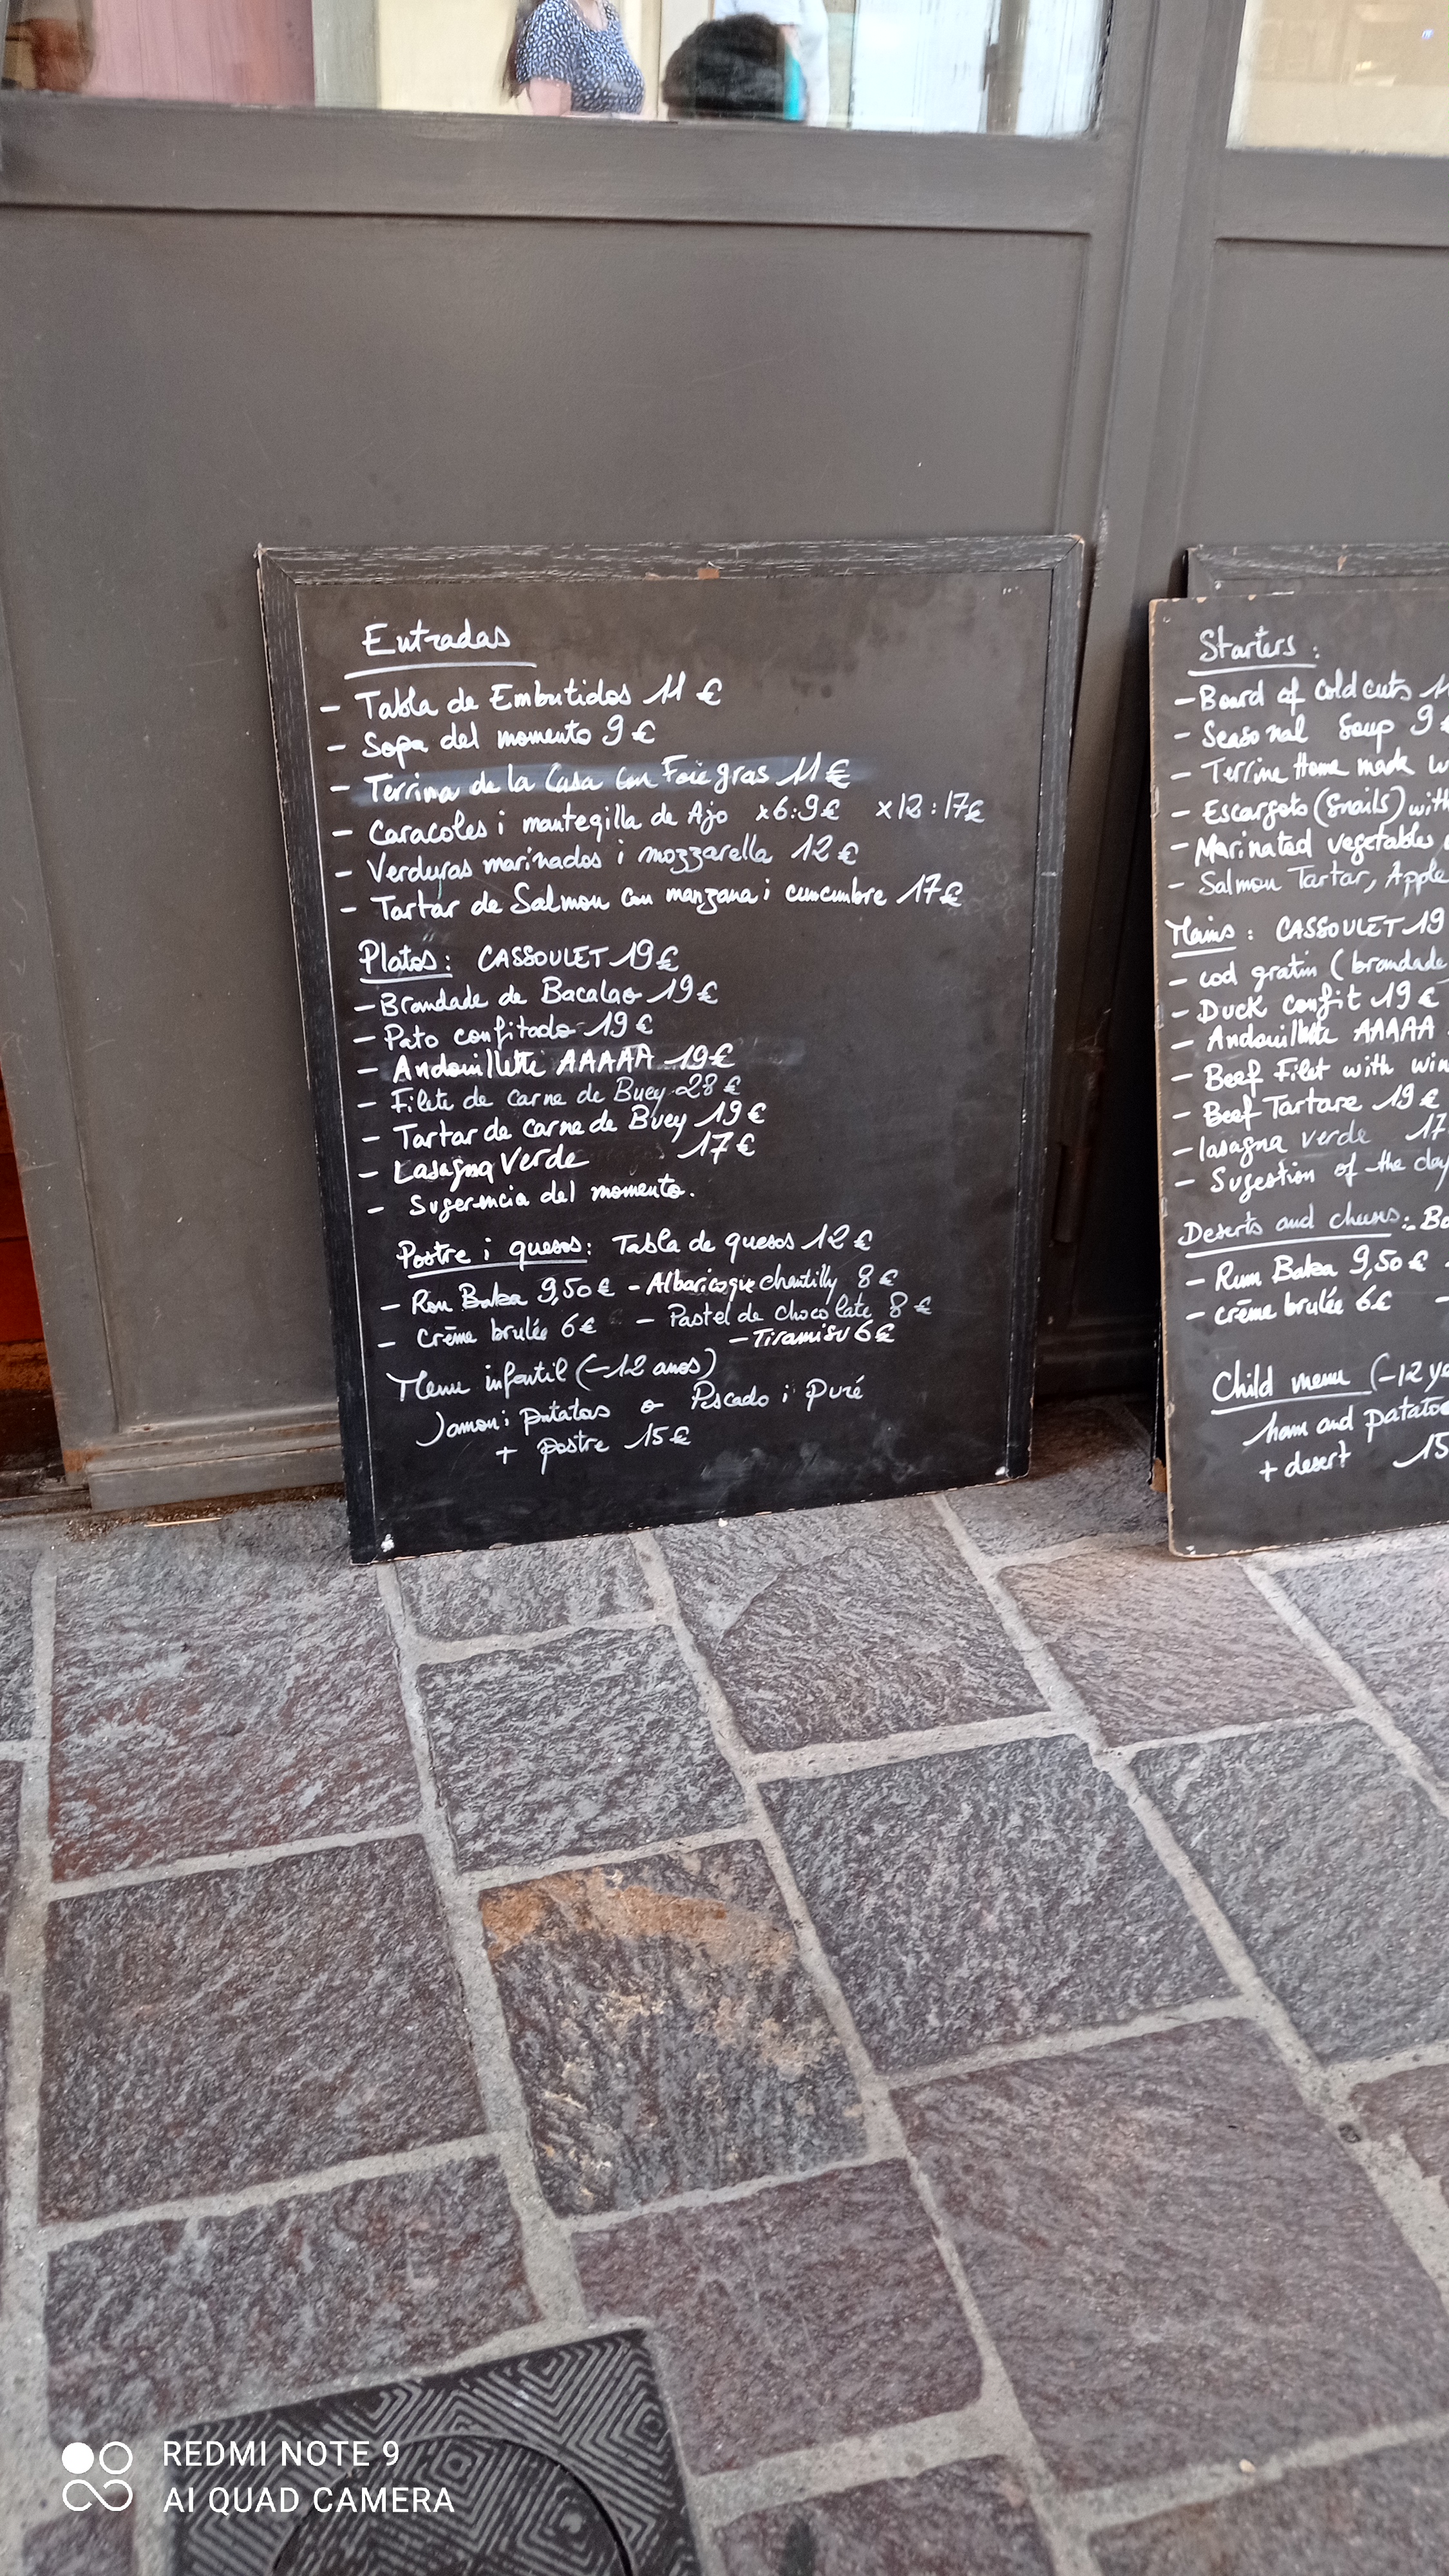 Entradas
- Tabla de Embutidos 11 €
- Sopa del momento 9 €
- Terrina de la Casa con Foie gras 11 €
- Caracoles i mantegilla de Ajo x6:9€ x12:17€
- Verduras marinados i mozzarella 12 €
- Tartar de Salmon con manzana i cumcumbre 17€
Platos: CASSOULET 19€
- Brandade de Bacalao 19€
- Pato confitado 19€
- Andouillette AAAAA 19€
- Filete de carne de Buey 28 €
- Tartar de carne de Buey 19€
- Lasagna Verde 17€
- Sugerencia del momento.
Postre i quesos: Tabla de quesos 12 €
- Ron Baba 9,50€ - Albaricoque chantilly 8 €
- Crème brulée 6€ - Pastel de chocolate 8 €
- Tiramisu 6€
Menu infantil (-12 anos)
Jamon i patatas o Pescado i puré
+ postre 15€
Starters :
- Board of cold cuts
- Seasonal Soup 9
- Terrine Home made
- Escargots (Snails) with
- Marinated vegetables
- Salmon Tartar, Apple
Mains : CASSOULET 19
- cod gratin (brandade
- Duck confit 19 €
- Andouillette AAAAA
- Beef Filet with
- Beef Tartare 19 €
- lasagna verde 17
- Sugestion of the day
Deserts and cheeses :
- Rum Baba 9,50€ -
- crème brulée 6€ -
Child menu (-12
ham and
+ desert 15
REDMI NOTE 9
AI QUAD CAMERA